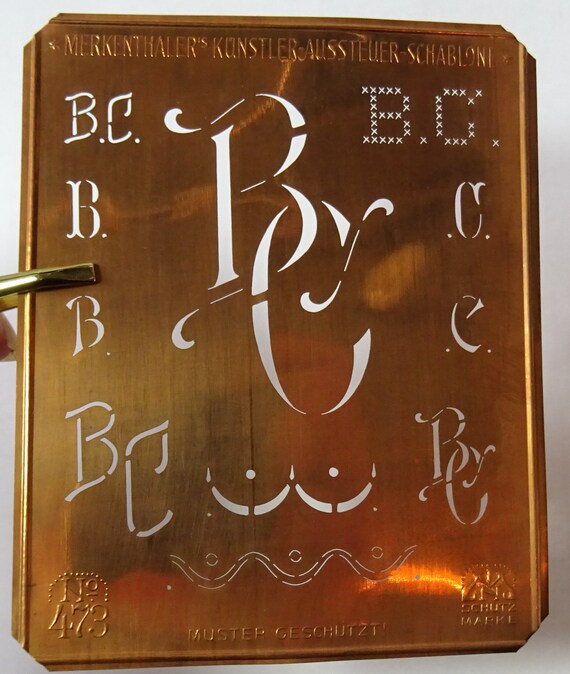 MERKENTHALER'S KÜNSTLER-AUSSTEUER-SCHABLONE
B.C.
B.C.
BC
B.
.C.
B.
.C.
BC
BC
No
473
MUSTER GESCHÜTZT
SCHUTZ
MARKE